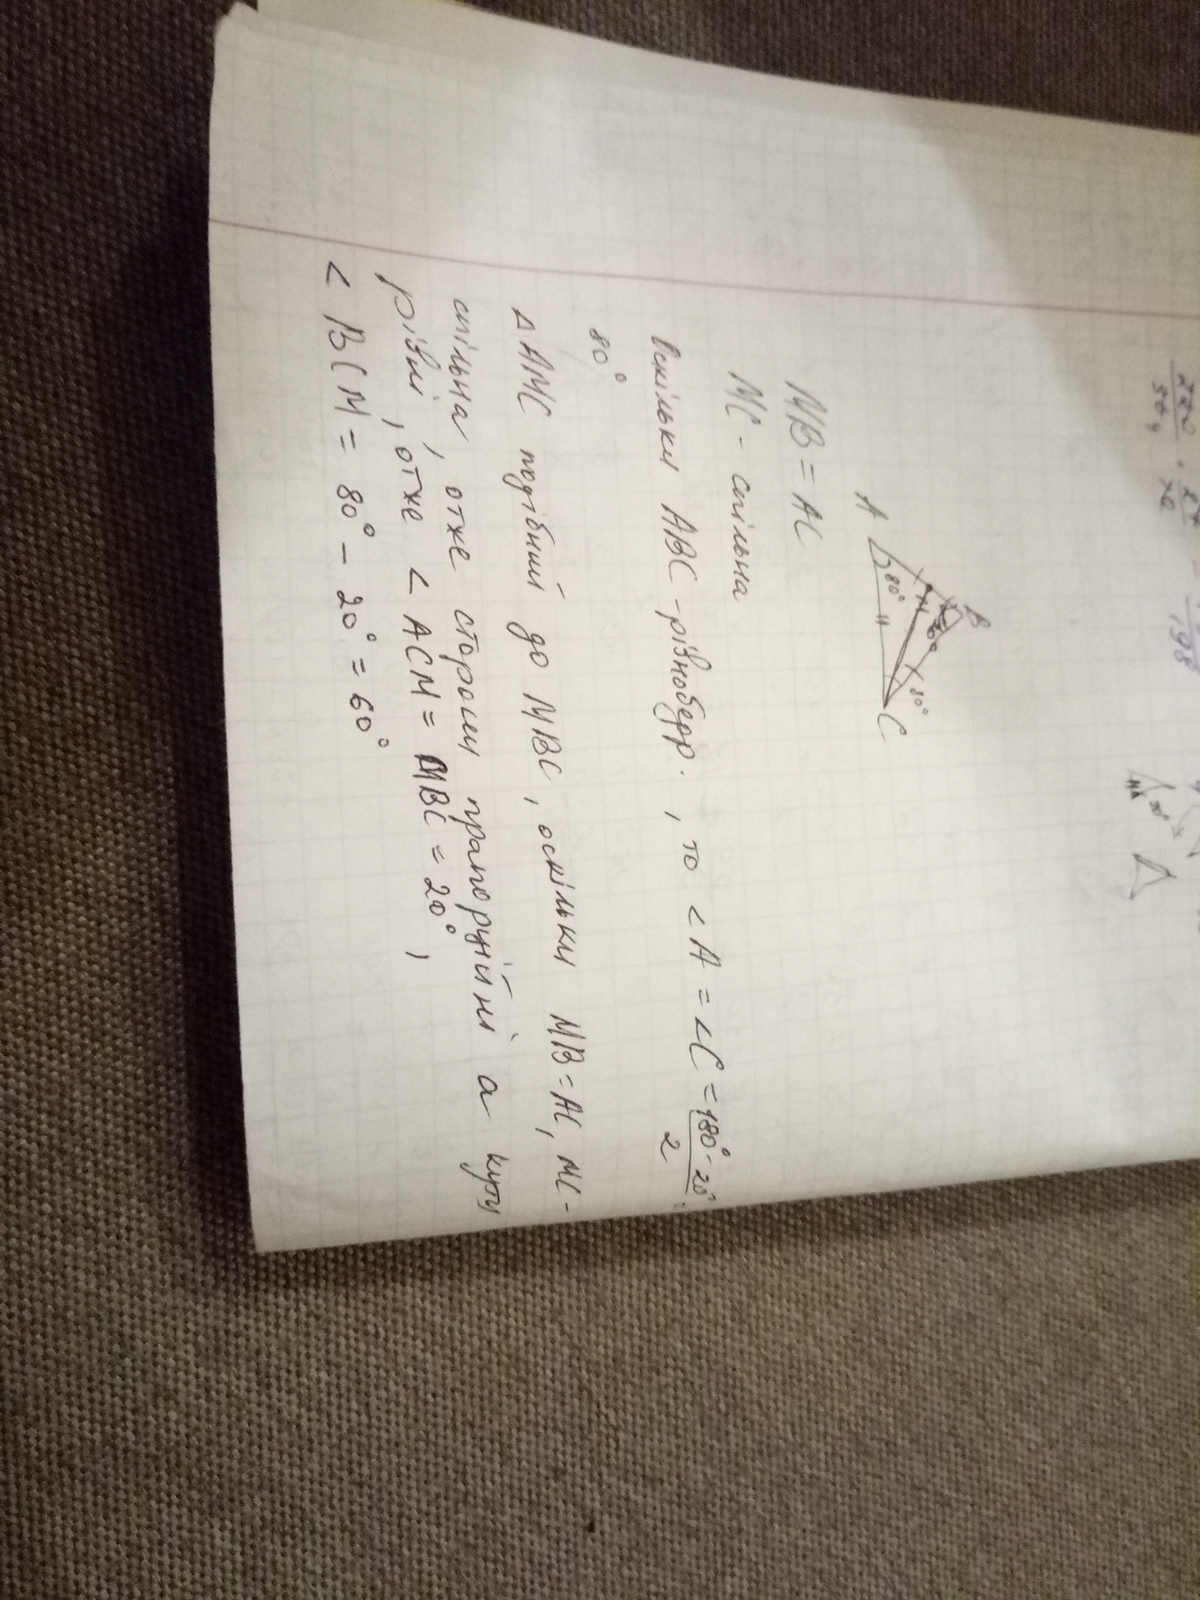 220
504
198
B
A
80°
M
80°
C
MB = AC
MC - спільна
Оскільки ABC - рівнобедр., то < A = <C = 180° - 20° =
2
80°
∆ AMC подібний до MBC, оскільки MB = AC, MC -
спільна, отже сторони прапорційні а кути
рівні, отже < ACM = MBC = 20°,
< BCM = 80° - 20° = 60°